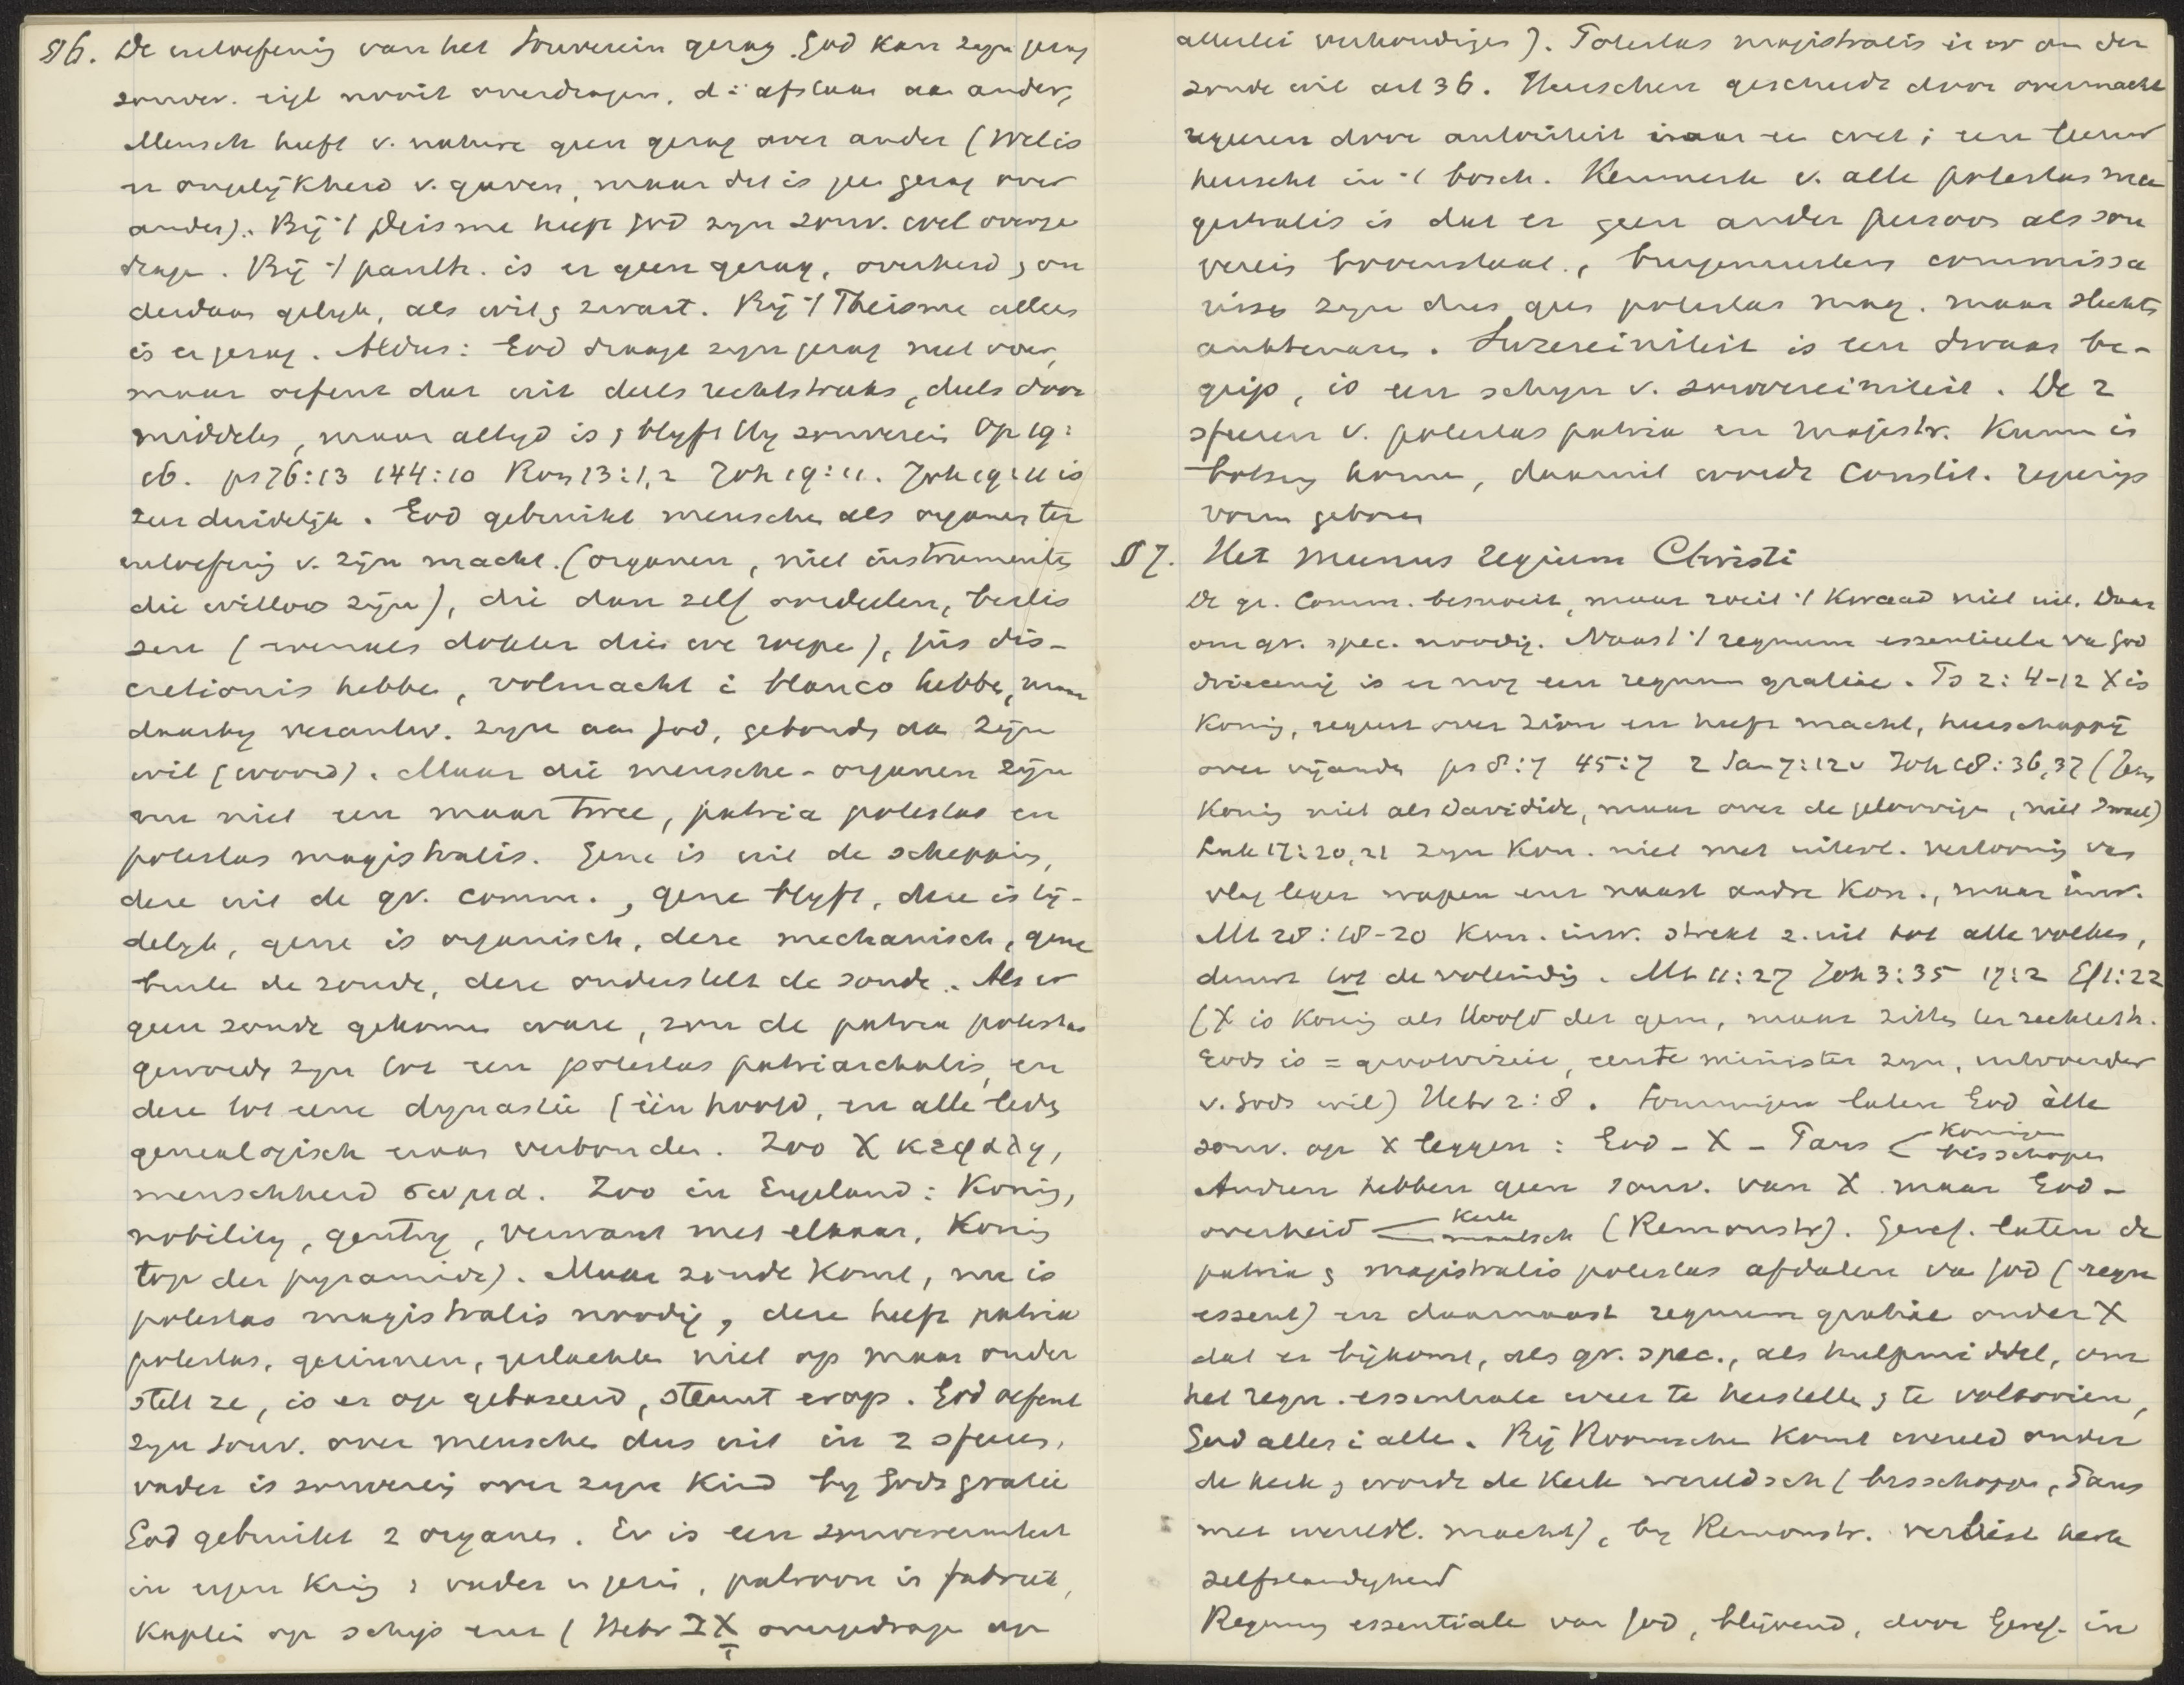 §6. De uitoefening van het Souverein gezag. God kan zijn gezag
souver. eigl nooit overdragen, d.i. afstaan aan ander,
Mensch heeft v. nature geen gezag over ander (Wel is
er ongelijkheid v. gaven, maar dat is geen gezag over
ander). Bij 't Deisme heeft God zijn souv. wel overge
dragen. Bij 't panth. is er geen gezag, overheid & on
derdaan gelijk, als wit & zwart. Bij 't Theisme alleen
is er gezag. Aldus: God draagt zijn gezag niet over,
maar oefent dat uit deels rechtstreeks, deels door
middelen, maar altijd is & blijft Hij souverein Op 19:
16. ps 76:13 144:10 Rom 13:1,2 Joh 19:11. Joh 19:11 is
zeer duidelijk. God gebruikt menschen als organen ter
uitoefening v. zijn macht. (organen, niet instrumenten
die willoos zijn), die dan zelf oordeelen, beslis
sen (evenals dokter dien we roepen), jus dis-
cretionis hebben, volmacht i blanco hebben, maar
daarbij verantw. zijn aan God, gebonden aan zijn
wil (woord). Maar die menschen-organen zijn
nu niet een maar twee, patria potestas en
potestas magistralis. Gene is uit de schepping,
deze uit de gr. comm., gene blijft, deze is tij-
delijk, gene is organisch, deze mechanisch, gene
buiten de zonde, deze onderstelt de zonde. Als er
geen zonde gekomen ware, zou de patria potestas
geworden zijn tot een potestas patriarchalis, en
deze tot eene dynastie (één hoofd, en alle leden
genealogisch eraan verbonden. Zoo X κεφαλη,
menschheid σωμα. Zoo in Engeland: Koning,
nobility, gentry, verwant met elkaar, Koning
top der pyramide). Maar zonde komt, nu is
potestas magistralis noodig, deze heeft patria
potestas, gezinnen, geslachten niet op maar onder
stelt ze, is er op gebaseerd, steunt erop. God oefent
zijn souv. over menschen dus uit in 2 sferen,
vader is souverein over zijn kind bij Gods gratie
God gebruikt 2 organen. Er is een souvereiniteit
in eigen kring: vader in gezin, patroon in fabriek,
Kaptein op schip enz (Hebr I X overgedragen op
allerlei verhoudingen). Potestas magistralis is er om der
zonde wil art 36. Menschen geschiedt door overmacht
regeeren door autoriteit maar een wet; een leeuw
heerscht in 't bosch. Kenmerk v. alle potestas ma
gistralis is dat er geen ander persoon als sou
verein bovenstaat., burgemeesters commissa
rissen zijn dus geen potestas mag. maar slechts
ambtenaren. Suzereiniteit is een dwaas be-
grip, is een schijn v. souvereiniteit. De 2
sferen v. potestas patria en magistr. kunnen in
botsing komen, daaruit wordt Constit. regerings
vorm geboren
§7. Het Munus regium Christi
De gr. Comm. besnoeit, maar roeit 't kwaad niet uit. Daar
om gr. spec. noodig. Naast 't regnum essentiale van God
drieeenig is er nog een regnum gratiae. Ps 2:4-12 X is
Koning, regeert over Sion en heeft macht, heerschappij
over vijanden ps 8:7 45:7 2 Sam 7:12v Joh 18:36,37 (Jezus
Koning niet als Davidide, maar over de geloovigen, niet Israel)
Luk 17:20,21 zijn Kon. niet met uiterl. vertooning van
vlag leger wapen enz naast andere Kon., maar inw.
Mt 28:18-20 Kon. inw. strekt z. uit tot alle volken,
duurt tot de voleinding. Mt 11:27 Joh 3:35 17:2 Ef 1:22
(X is Koning als Hoofd der gem, maar zitten ter rechterh.
Gods is = grootvizier, eerste minister zijn, uitvoerder
v. Gods wil) Hebr 2:8. Sommigen laten God àlle
souv. op X leggen: God – X – Paus < Koningen
bisschopen
Anderen hebben geen souv. van X maar God –
overheid < Kerk
maatsch (Remonstr). Geref. laten de
patria & magistralis potestas afdalen van God (regn
essent) en daarnaast regnum gratiae onder X
dat er bijkomt, als gr. spec., als hulpmiddel, om
het regn. essentiale weer te herstellen & te voltooien,
God alles i allen. Bij Roomschen komt wereld onder
de kerk & wordt de kerk wereldsch (bisschoppen, Paus
met wereldl. macht), bij Remonstr. verliest kerk
zelfstandigheid
Regnum essentiale van God, blijvend, door Geref. in